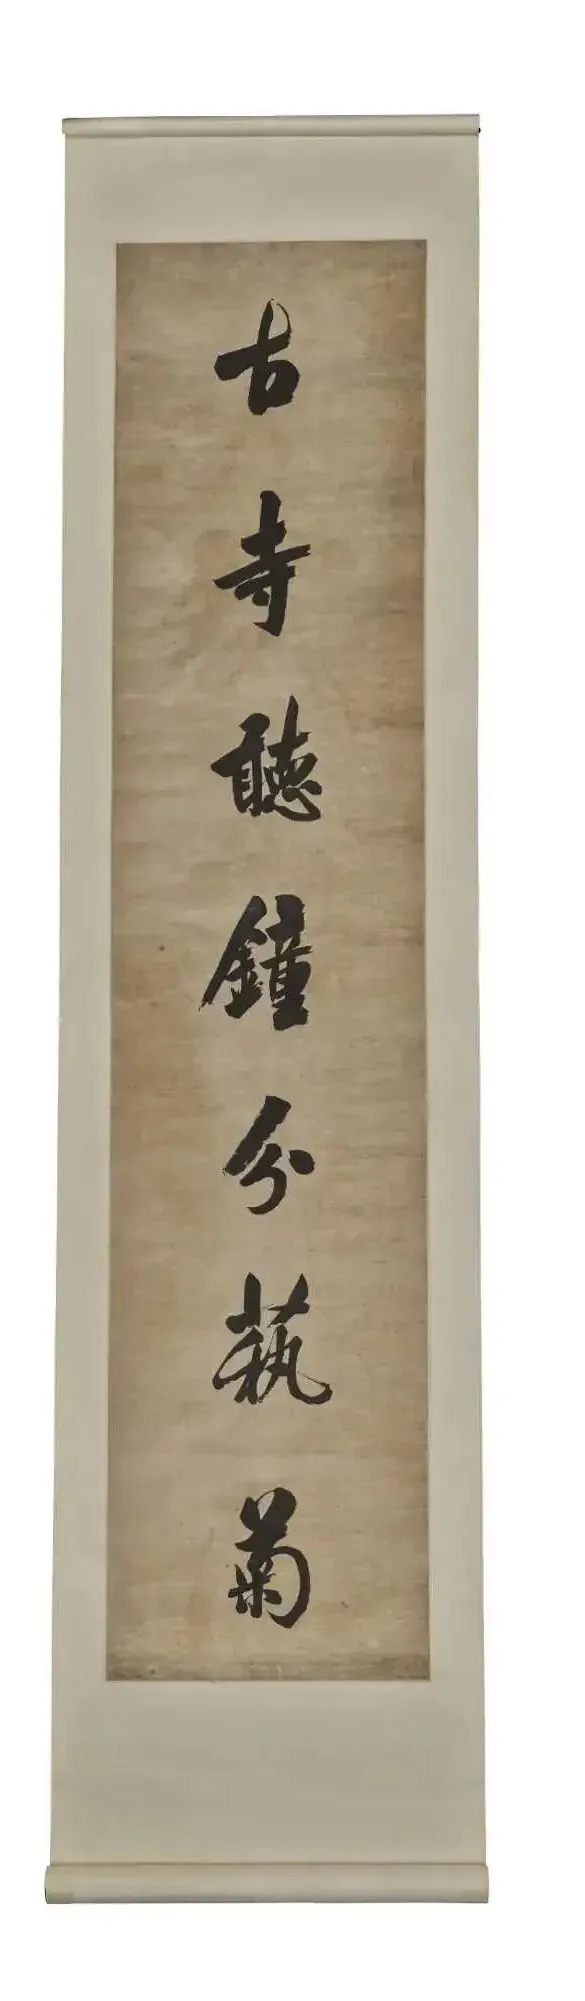 古寺聽鐘分蓺菊